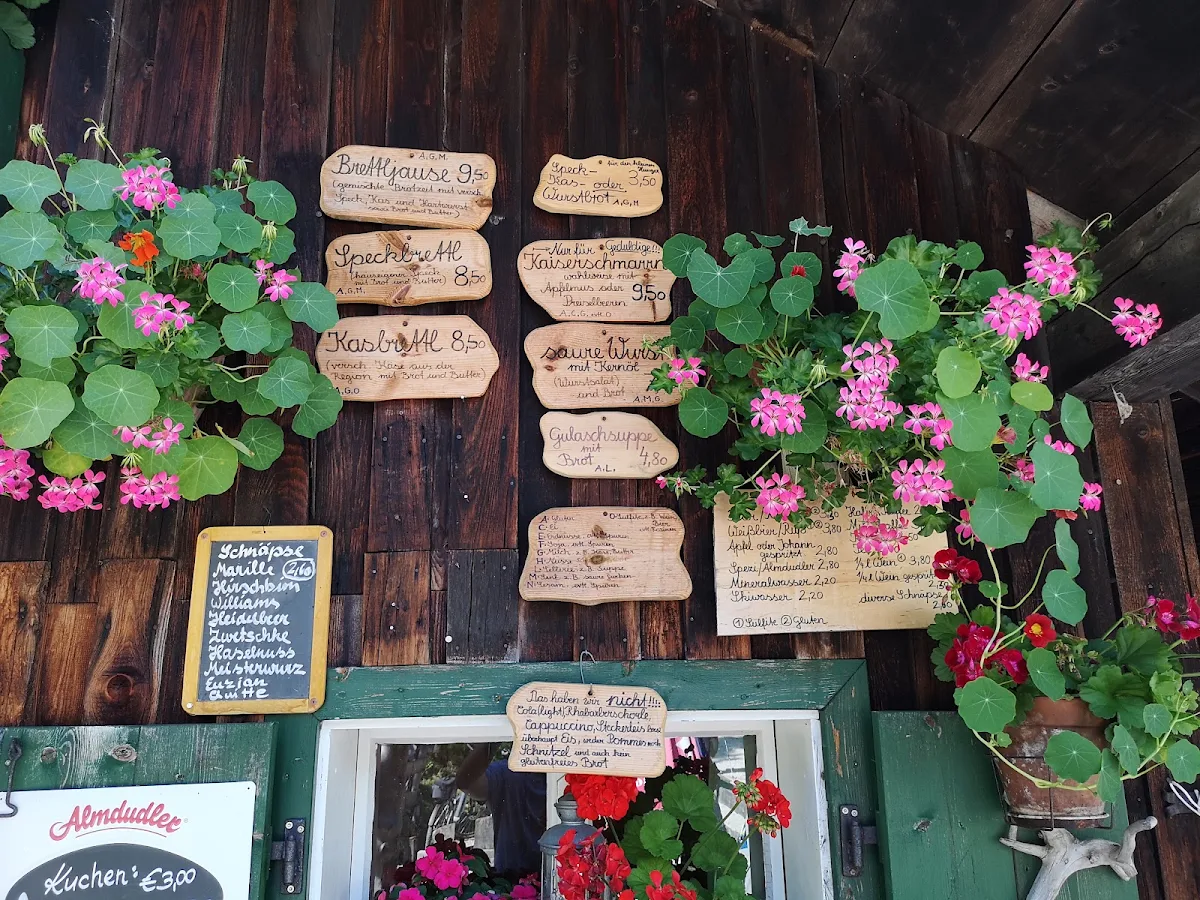 A.G.M.
Brettljause 9,50
(gemischte Brotzeit mit versch.
Speck, Kas und Hartwurst
sowie Brot und Butter)
Speckbrettl
(hauseigener Speck
mit Brot und Butter) 8,50
A.G.M.
Kasbrettl 8,50
(versch. Käse aus der
Region mit Brot und Butter)
A.G.O
für den kleinen
Hunger
Speck-
Kas- oder 3,50
Wurstbrot A,G,M
Nur für Geduldige!!!
Kaiserschmarrn
wahlweise mit
Apfelmus oder 9,50
Preiselbeeren
A.C.G.
saure Wurst
mit Kernöl
(Wurstsalat)
Brot A,M,G
Gulaschsuppe
mit
Brot 4,80
A.L.
A-Gluten
C-Ei
G-Milch z.B. Käse, Butter
H-Nüsse
L-Sellerie z.B. Suppe
M-Senf z.B. saure Gurken
Weißbier/Radler 3,80
Apfel oder Johann.
gespritzt 2,80
Spezi/Almdudler 2,80
Mineralwasser 2,20
Skiwasser 2,20
①Sulfite ②Gluten
¼l Wein 3,80
¼l Wein gespritzt
2,50
diverse Schnäpse
2,60
Schnäpse
Marille 2,60
Hirschbirn
Williams
Heidelbeer
Zwetschke
Haselnuss
Meisterwurz
Enzian
Quitte
Das haben wir nicht!!!:
Cola(light)/Rhabarberschorle,
Cappuccino, Steckerleis bzw.
überhaupt Eis, weder Pommes noch
Schnitzel und auch kein
glutenfreies Brot
Almdudler
Kuchen: €3,00